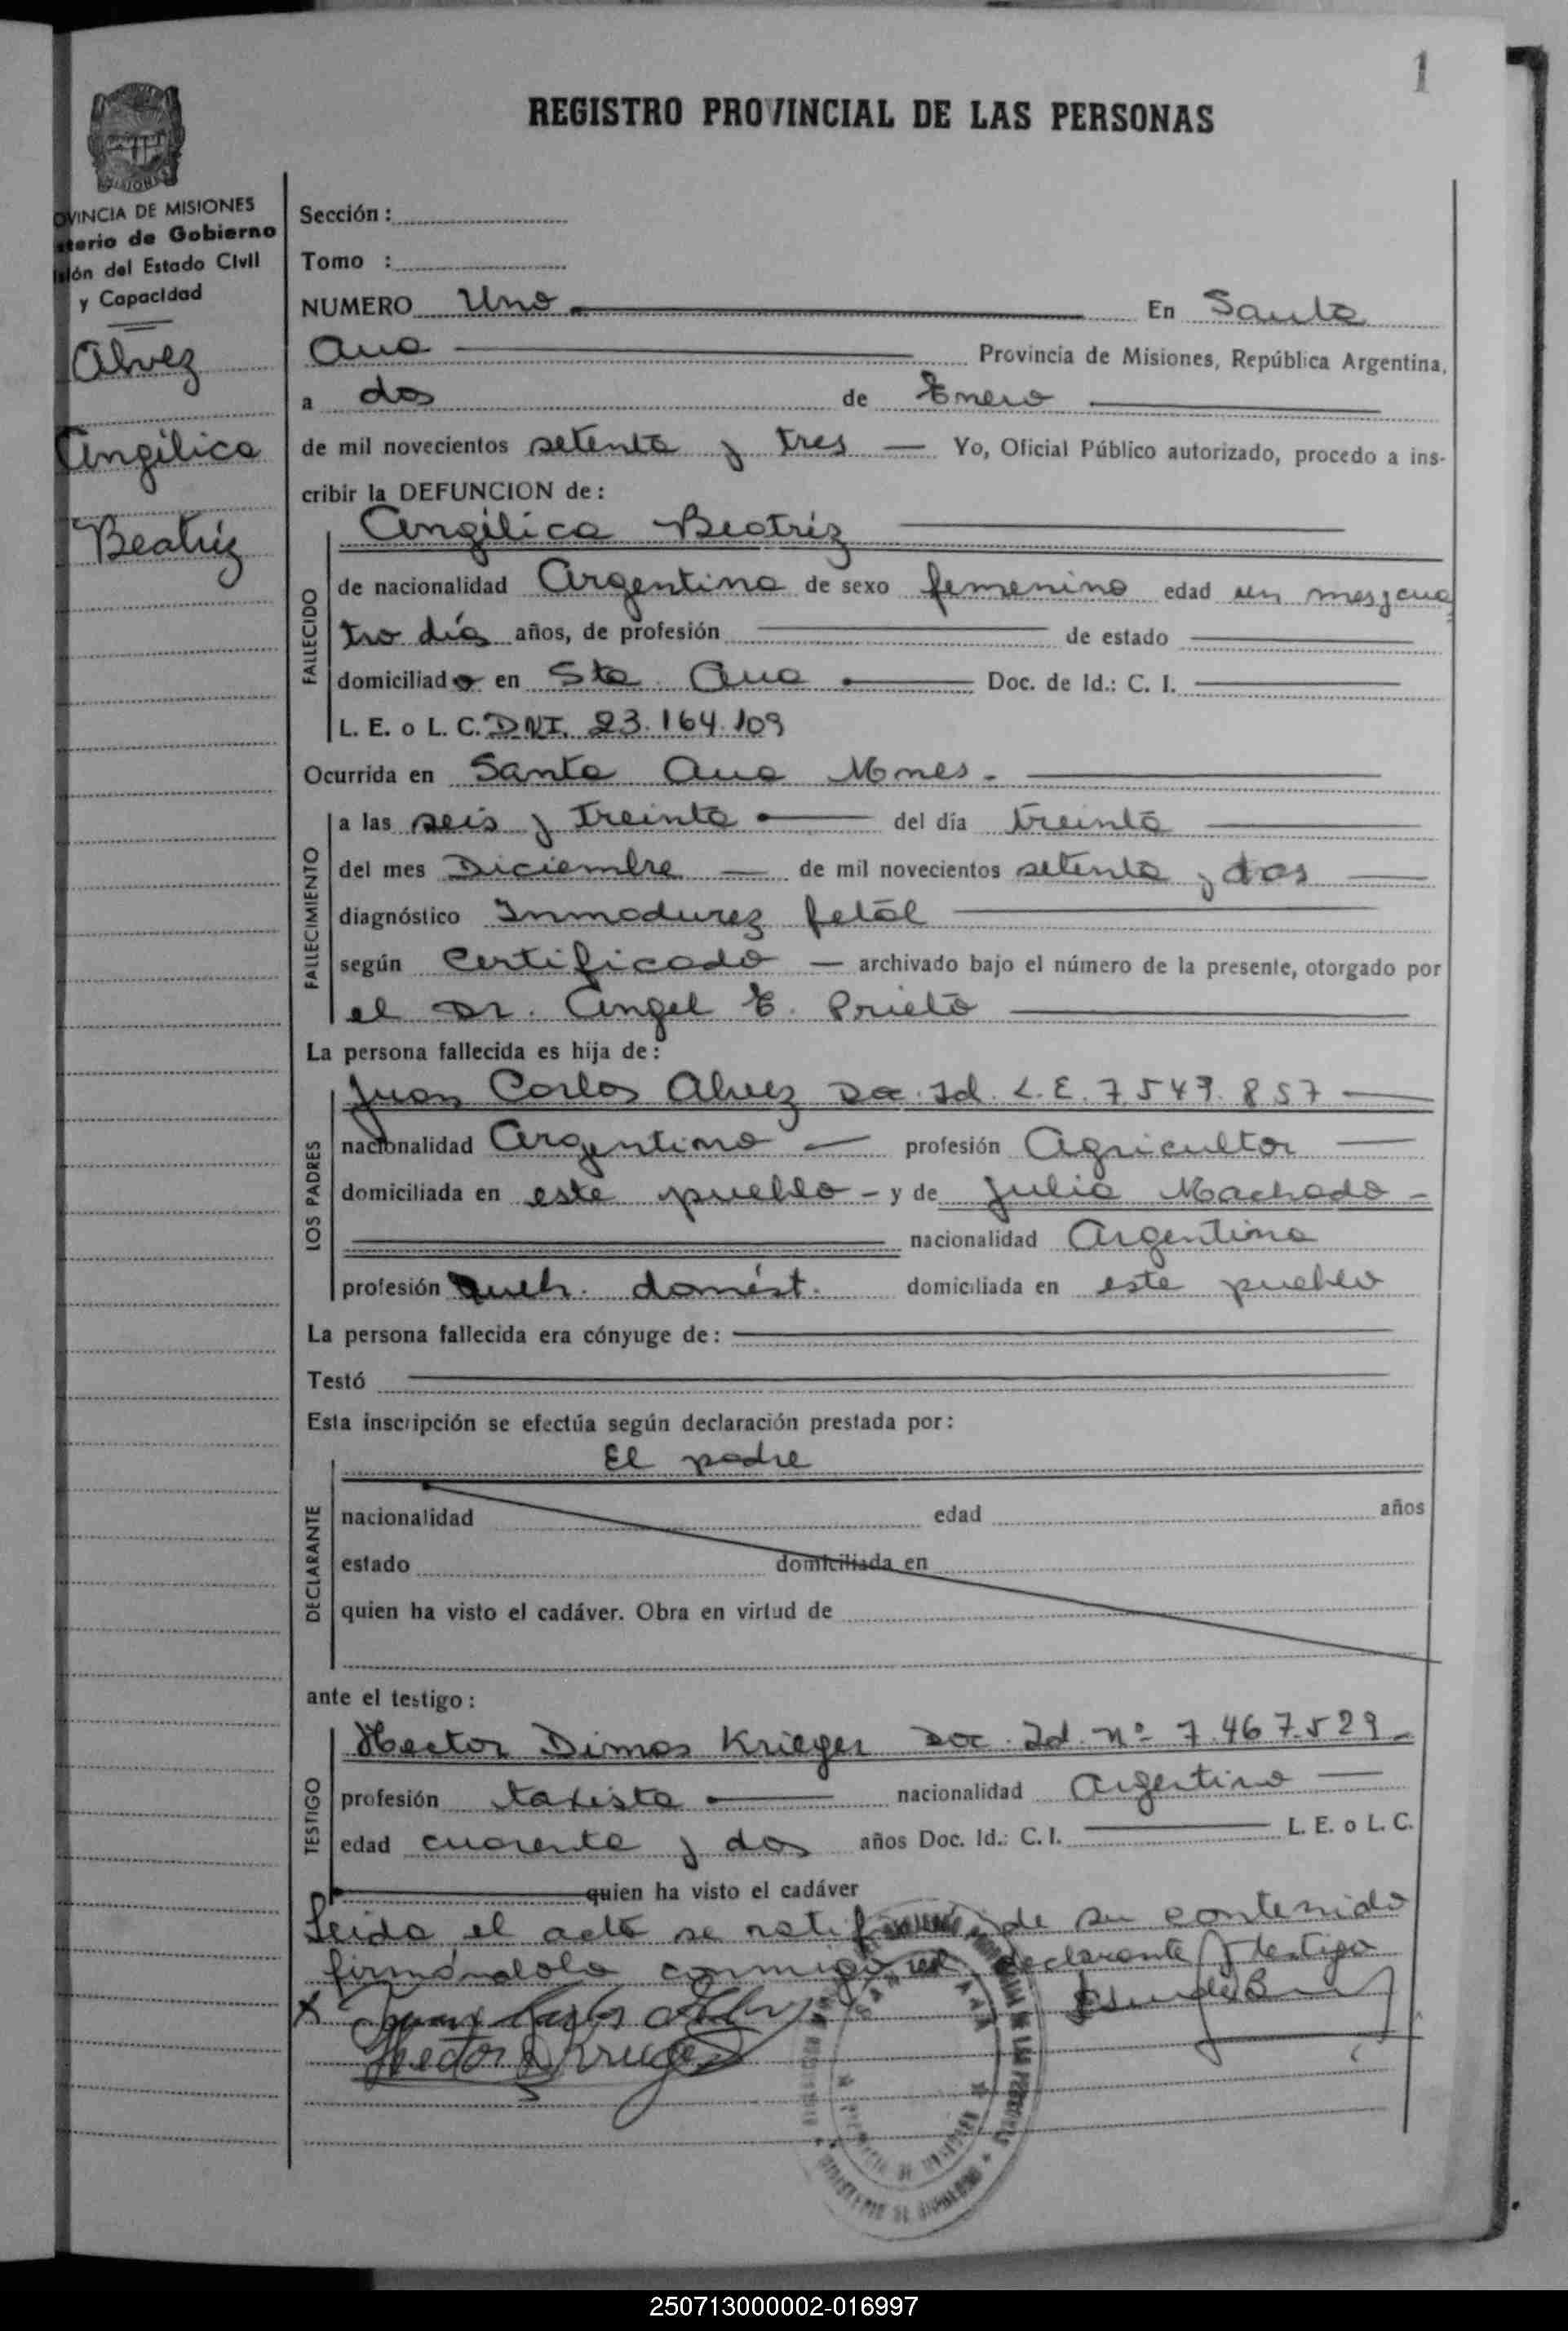 1
REGISTRO PROVINCIAL DE LAS PERSONAS
OVINCIA DE MISIONES
sterio de Gobierno
isión del Estado Civil
y Capacidad
Alvez
Angélica
Beatríz
Sección :
Tomo :
NUMERO Uno En Santa
Ana Provincia de Misiones, República Argentina,
a dos de Enero
de mil novecientos setenta y tres Yo, Oficial Público autorizado, procedo a ins-
cribir la DEFUNCION de :
Angélica Beatríz
FALLECIDO
de nacionalidad Argentina de sexo femenino edad un mes y cua
tro día años, de profesión de estado
domiciliado en Sta Ana Doc. de Id.: C. I.
L. E. o L. C. DNI. 23.164.109
Ocurrida en Santa Ana Mnes.
FALLECIMIENTO
a las seis y treinta del día treinta
del mes Diciembre de mil novecientos setenta y dos
diagnóstico Inmadurez fetál
según Certificado archivado bajo el número de la presente, otorgado por
el Dr. Angel E. Prieto
La persona fallecida es hija de :
LOS PADRES
Juan Carlos Alvez Doc. Id. L.E. 7.549.857
nacionalidad Argentina profesión Agricultor
domiciliada en este pueblo - y de Julia Machado -
nacionalidad Argentina
profesión queh. domést. domiciliada en este pueblo
La persona fallecida era cónyuge de :
Testó
Esta inscripción se efectúa según declaración prestada por :
El padre
DECLARANTE
nacionalidad edad años
estado domiciliada en
quien ha visto el cadáver. Obra en virtud de
ante el testigo :
TESTIGO
Hector Dimas Krieger Doc. Id. nº 7.467.529
profesión taxista nacionalidad Argentino
edad cuarenta y dos años Doc. Id.: C. I. L. E. o L. C.
quien ha visto el cadáver
Leida el acta se de su contenido
firmándola conmigo el declarante y testigo
X Juan Carlos
Hector D Krieger
250713000002-016997